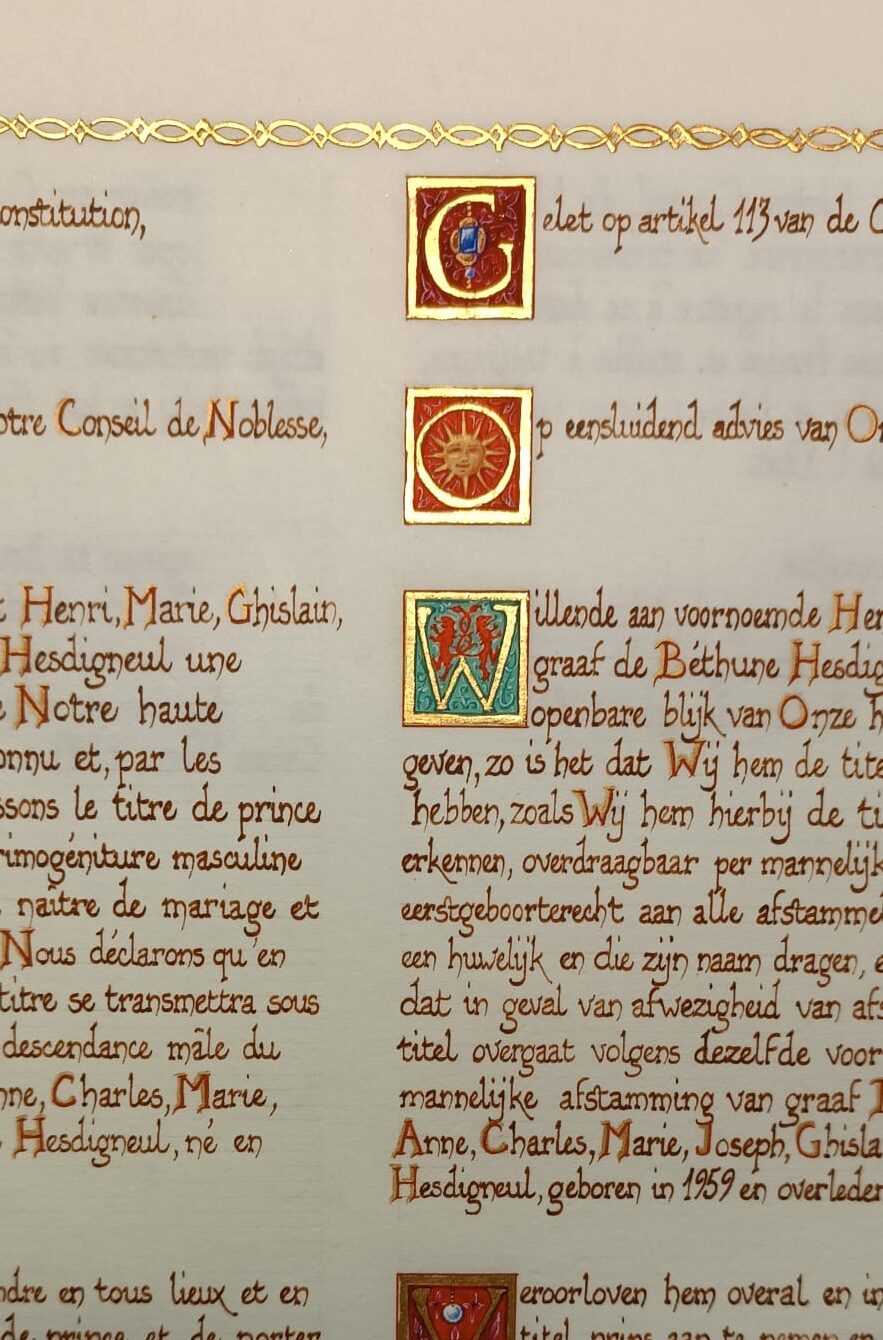 onstitution,
otre Conseil de Noblesse,
Henri, Marie, Ghislain,
Hesdigneul une
Notre haute
onnu et, par les
ssons le titre de prince
rimogéniture masculine
naître de mariage et
Nous déclarons qu'en
titre se transmettra sous
descendance mâle du
nne, Charles, Marie,
Hesdigneul, né en
ndre en tous lieux et en
de prince et de porter
Gelet op artikel 113 van de C
Op eensluidend advies van On
Willende aan voornoemde Hen
graaf de Béthune Hesdig
openbare blijk van Onze h
geven, zo is het dat Wij hem de tite
hebben, zoals Wij hem hierbij de ti
erkennen, overdraagbaar per mannelijk
eerstgeboorterecht aan alle afstamme
een huwelijk en die zijn naam dragen, e
dat in geval van afwezigheid van afs
titel overgaat volgens dezelfde voor
mannelijke afstamming van graaf
Anne, Charles, Marie, Joseph, Ghisla
Hesdigneul, geboren in 1959 en overleden
Veroorloven hem overal en in
titel prins aan te nemen en